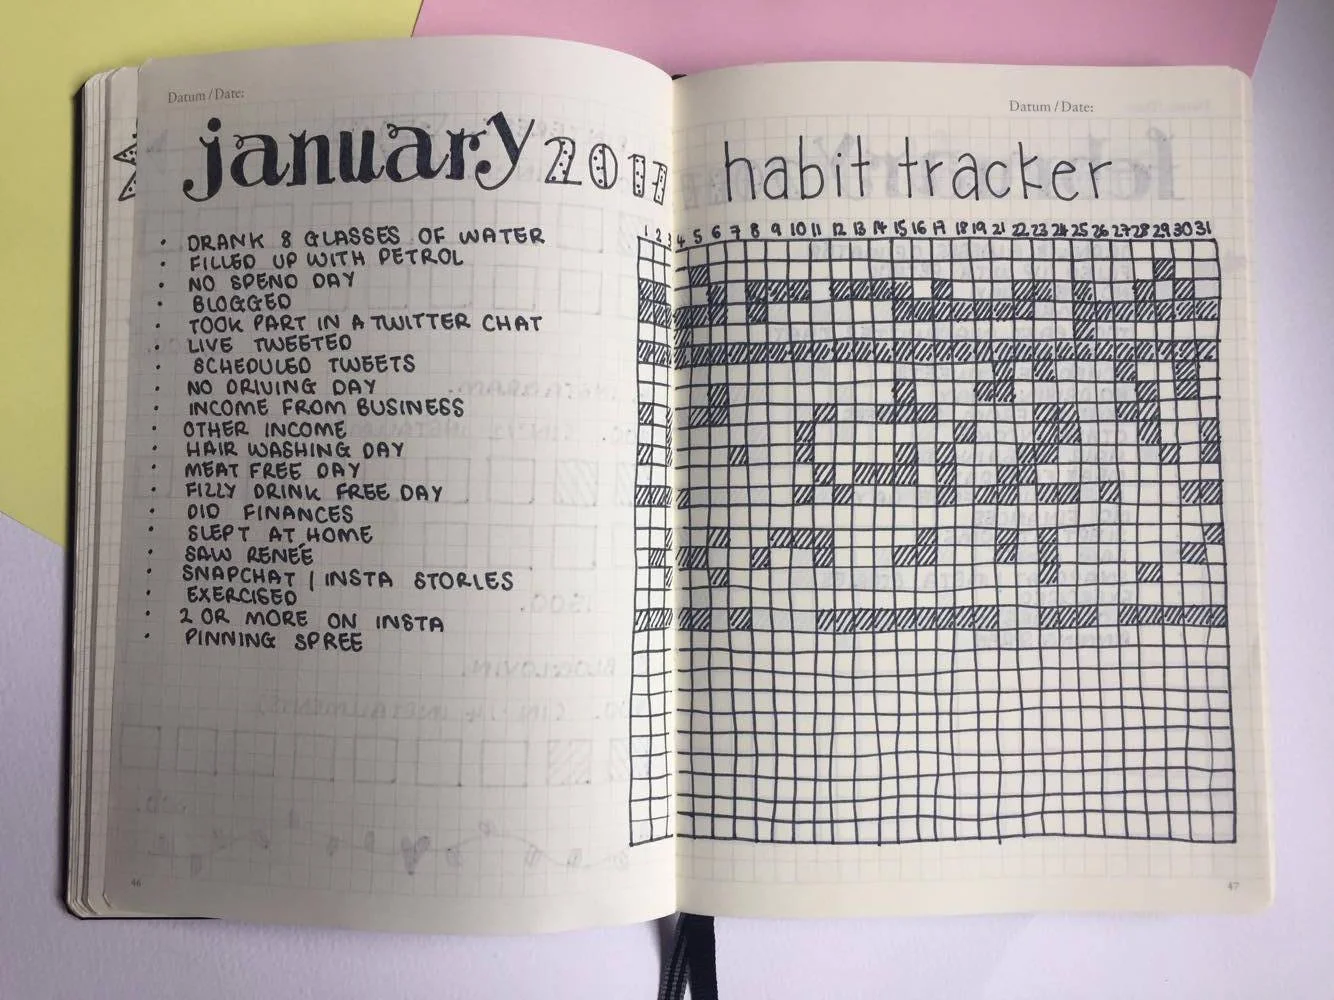 Datum / Date:
january 2017
• DRANK 8 GLASSES OF WATER
• FILLED UP WITH PETROL
• NO SPEND DAY
• BLOGGED
• TOOK PART IN A TWITTER CHAT
• LIVE TWEETED
• SCHEDULED TWEETS
• NO DRIVING DAY
• INCOME FROM BUSINESS
• OTHER INCOME
• HAIR WASHING DAY
• MEAT FREE DAY
• FIZZY DRINK FREE DAY
• DID FINANCES
• SLEPT AT HOME
• SAW RENEÉ
• SNAPCHAT | INSTA STORIES
• EXERCISED
• 2 OR MORE ON INSTA
• PINNING SPREE
46
Datum / Date:
habit tracker
1 2 3 4 5 6 7 8 9 10 11 12 13 14 15 16 17 18 19 21 22 23 24 25 26 27 28 29 30 31
47